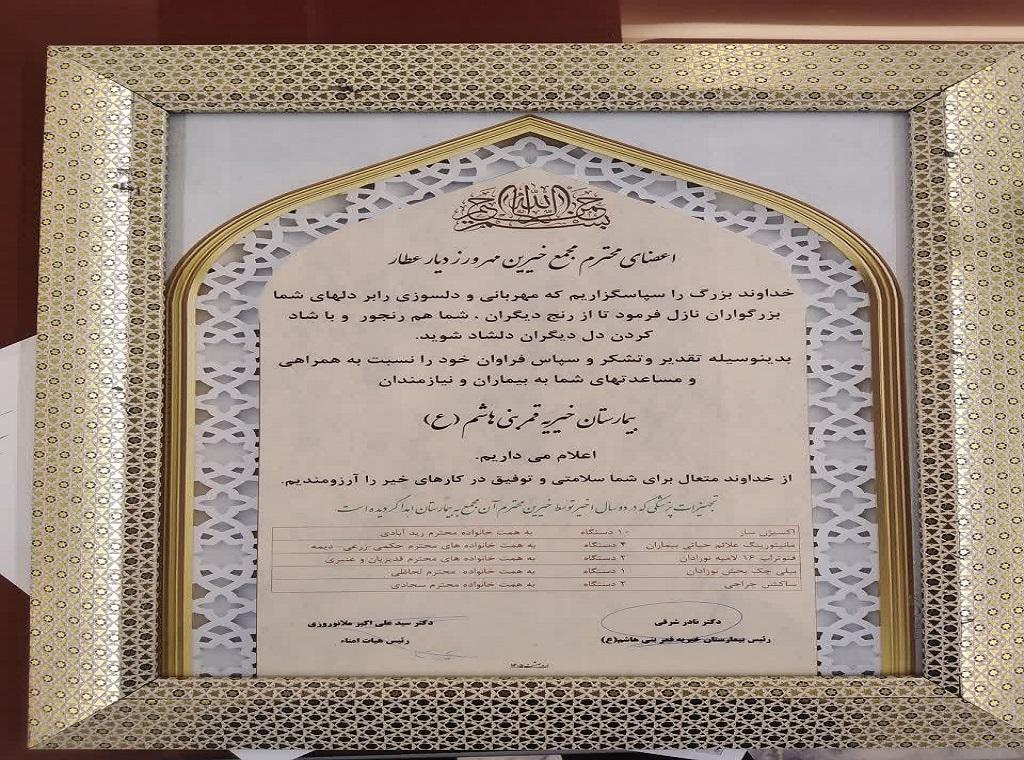 بسم الله الرحمن الرحیم
اعضای محترم مجمع خیرین مهرورز دیار عطار
خداوند بزرگ را سپاسگزاریم که مهربانی و دلسوزی رابر دلهای شما
بزرگواران نازل فرمود تا از رنج دیگران ، شما هم رنجور و با شاد
کردن دل دیگران دلشاد شوید.
بدینوسیله تقدیر وتشکر و سپاس فراوان خود را نسبت به همراهی
و مساعدتهای شما به بیماران و نیازمندان
بیمارستان خیریه قمربنی هاشم (ع)
اعلام می داریم.
از خداوند متعال برای شما سلامتی و توفیق در کارهای خیر را آرزومندیم.
تجهیزات پزشکی که در دو سال اخیر توسط خیرین محترم آن مجمع به بیمارستان اهدا گردیده است
اکسیژن ساز ۱۰ دستگاه به همت خانواده محترم زید آبادی
مانیتورینگ علائم حیاتی بیماران ۳ دستگاه به همت خانواده های محترم حکمی زرعی - دیمه
فتوتراپی ۱۶ لامپه نوزادان ۲ دستگاه به همت خانواده های محترم قدیریان و عنبری
بیلی چک بخش نوزادان ۱ دستگاه به همت خانواده محترم لحاظی
ساکشن جراحی ۲ دستگاه به همت خانواده محترم سجادی
دکتر نادر شرفی دکتر سید علی اکبر ملانوروزی
رئیس بیمارستان خیریه قمر بنی هاشم(ع) رئیس هیات امناء